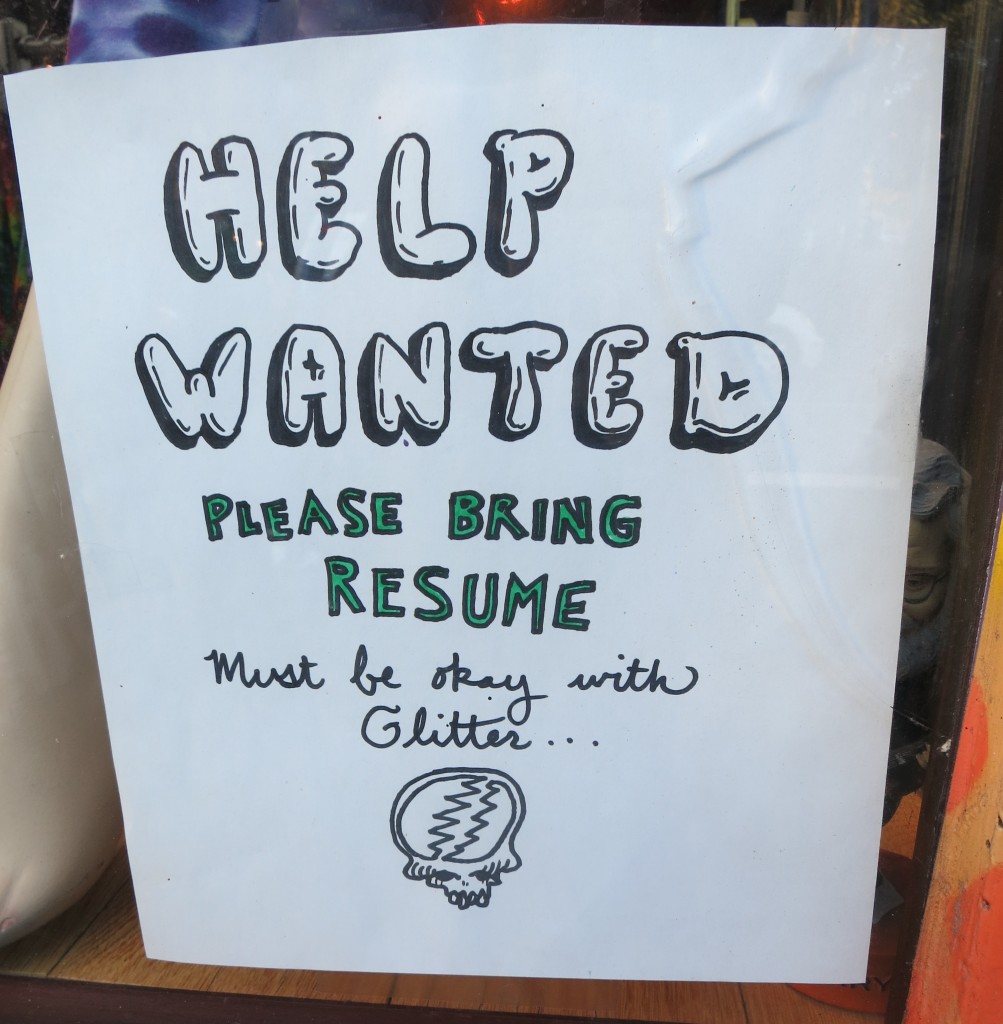 HELP
WANTED
PLEASE BRING
RESUME
Must be okay with
Glitter...